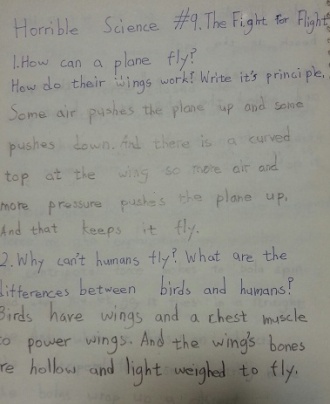 Horrible Science #9. The Fight for Flight
1. How can a plane fly?
How do their wings work? Write it's principle.
Some air pushes the plane up and some
pushes down. And there is a curved
top at the wing so more air and
more pressure pushes the plane up.
And that keeps it fly.
2. Why can't humans fly? What are the
differences between birds and humans?
Birds have wings and a chest muscle
to power wings. And the wing's bones
re hollow and light weighed to fly.